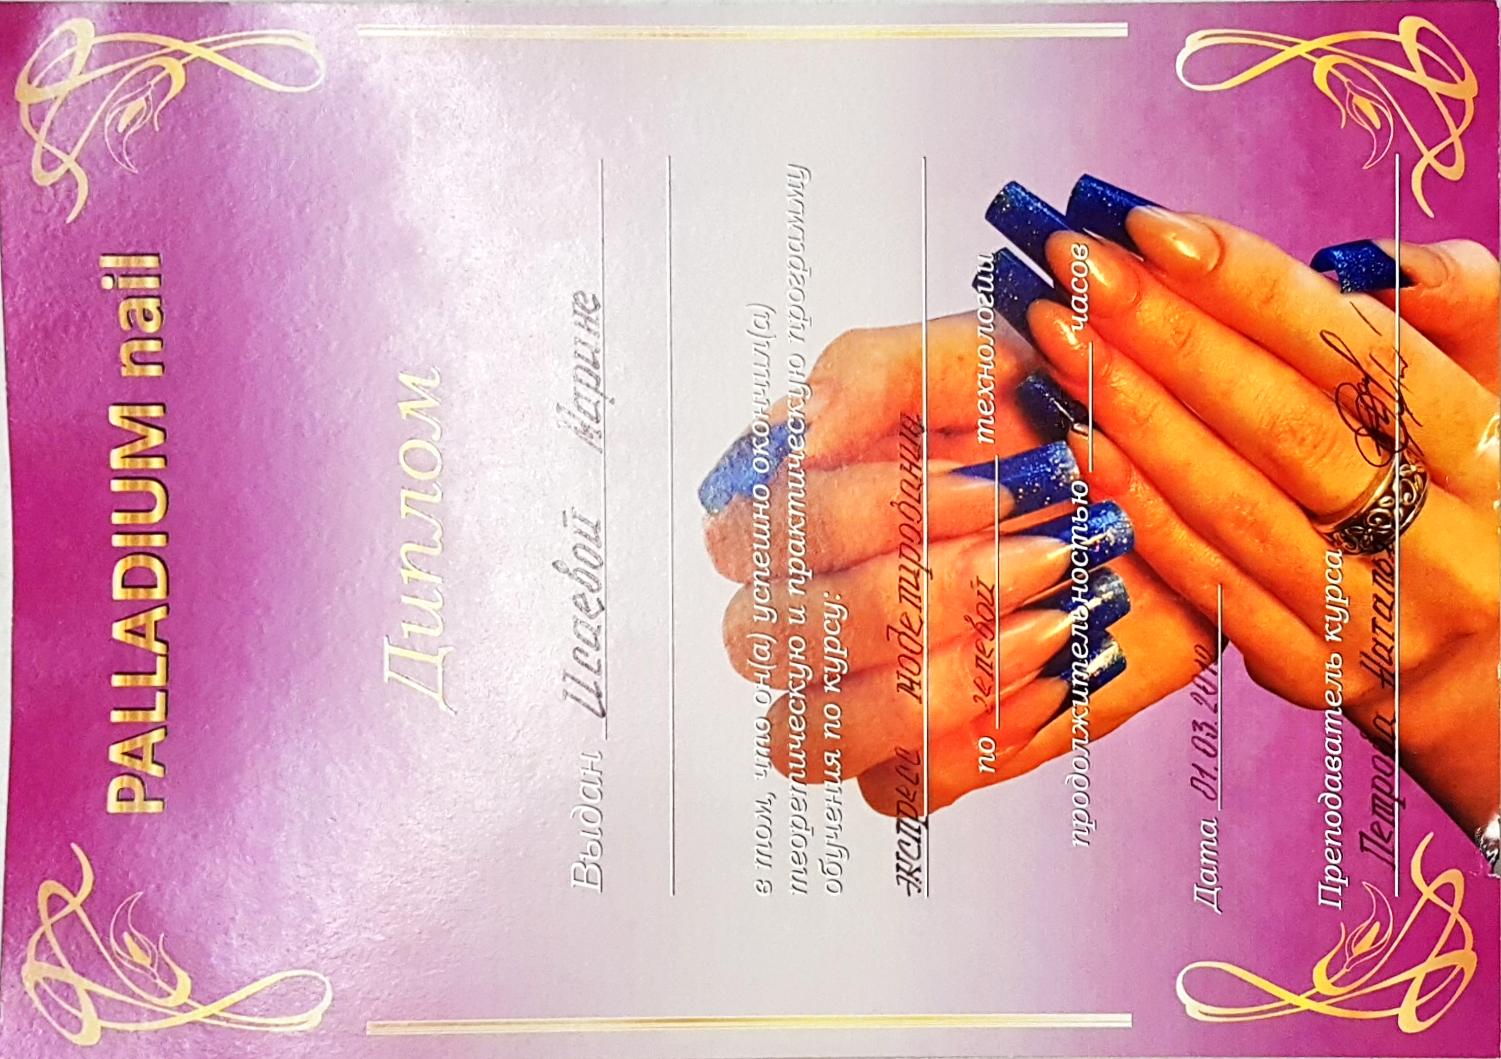 PALLADIUM nail
Диплом
Выдан Исаевой Марине
в том, что он(а) успешно окончил(а)
теоретическую и практическую программу
обучения по курсу:
Экспресс моделирование
по гелевой технологии
продолжительностью часов
Дата 01.03.
Преподаватель курса
Петрова